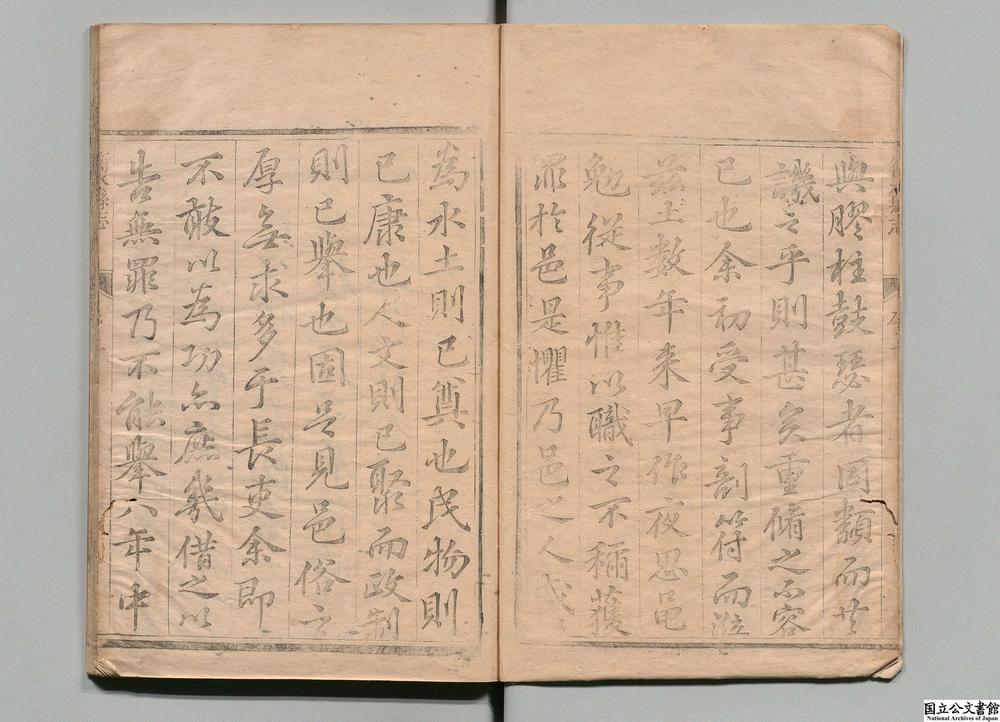 與膠柱鼓瑟者同類而共
譏之乎則甚矣重脩之不容
已也余初受事剖符而涖
茲土數年来早作夜思黽
勉從事惟以職之不稱獲
罪於邑是懼乃邑之人民
為水土則已奠也民物則
已康也人文則已聚而政制
則已舉也固足見邑俗之
厚無求多于長吏余即
不敢以為功亦庶幾借之以
告無罪乃不能舉八年中
縣志
国立公文書館
National Archives of Japan